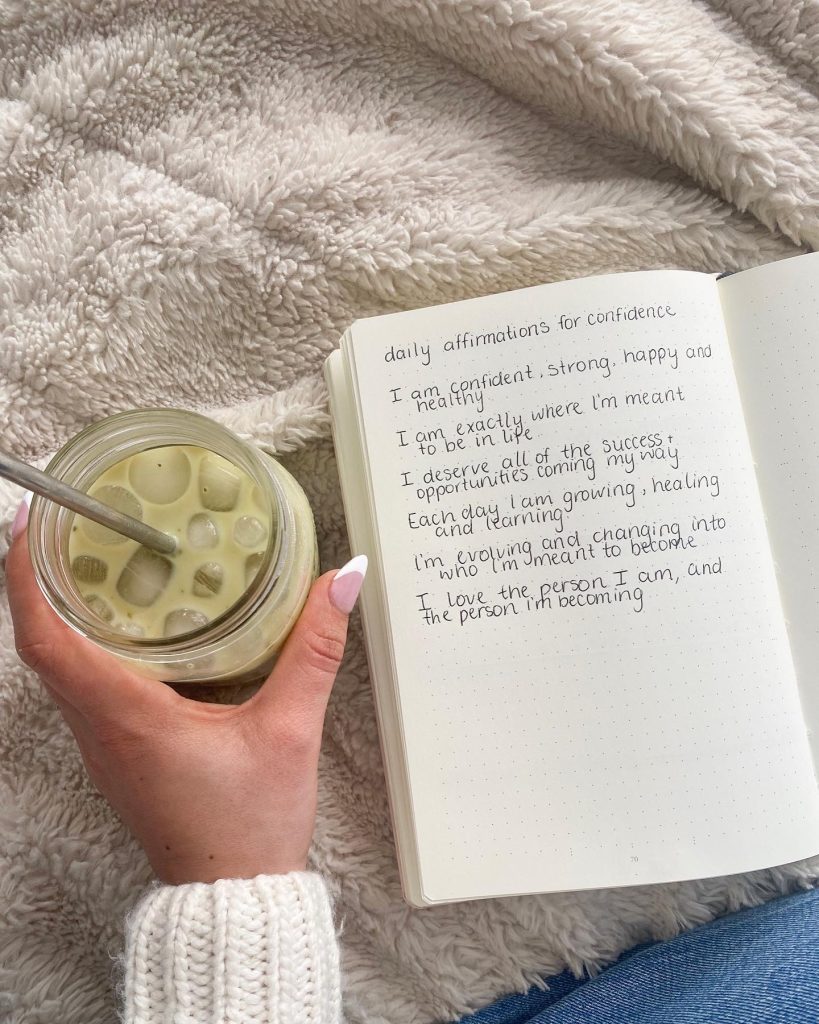 daily affirmations for confidence
I am confident, strong, happy and
healthy
I am exactly where I'm meant
to be in life
I deserve all of the success +
opportunities coming my way
Each day I am growing, healing
and learning
I'm evolving and changing into
who I'm meant to become
I love the person I am, and
the person i'm becoming
70